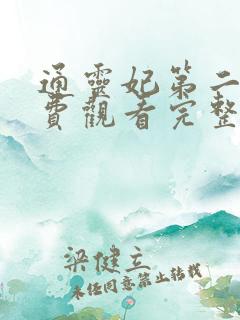 通靈妃第二
費觀看完整
梁健立
未任同意禁止轉載